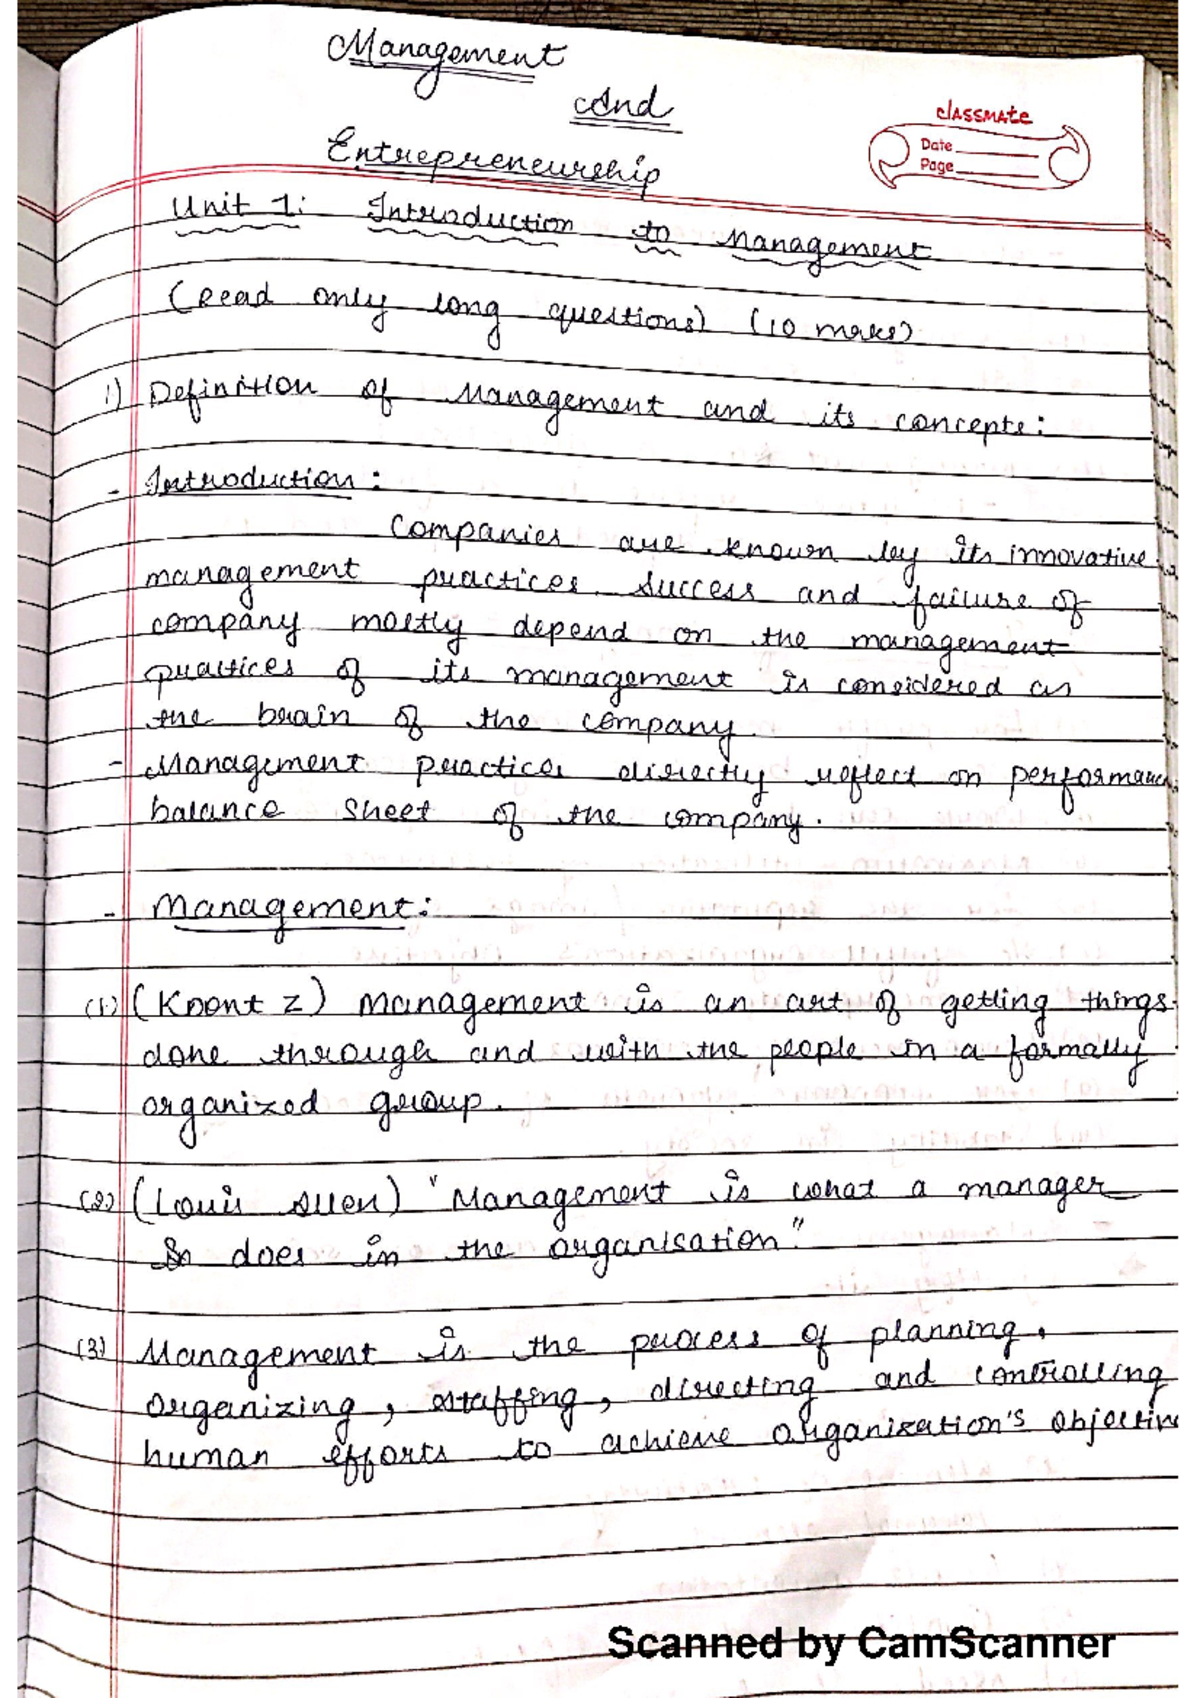 Management
And
Entrepreneurship
classmate
Date
Page
Unit 1: Introduction to Management
(Read only long questions) (10 marks)
1) Definition of Management and its concepts:
- Introduction:
Companies are known by its innovative
management practices. Success and failure of
company mostly depend on the management
practices of its management is considered as
the brain of the company.
- Management practices directly reflect on performance
balance sheet of the company.
- Management:
(1.) (Koont z) Management is an art of getting things
done through and with the people in a formally
organized group.
(2.) (Louis Allen) "Management is what a manager
does in the organisation"
(3) Management is the process of planning,
organizing, staffing, directing and controlling
human efforts to achieve organization's objective
Scanned by CamScanner